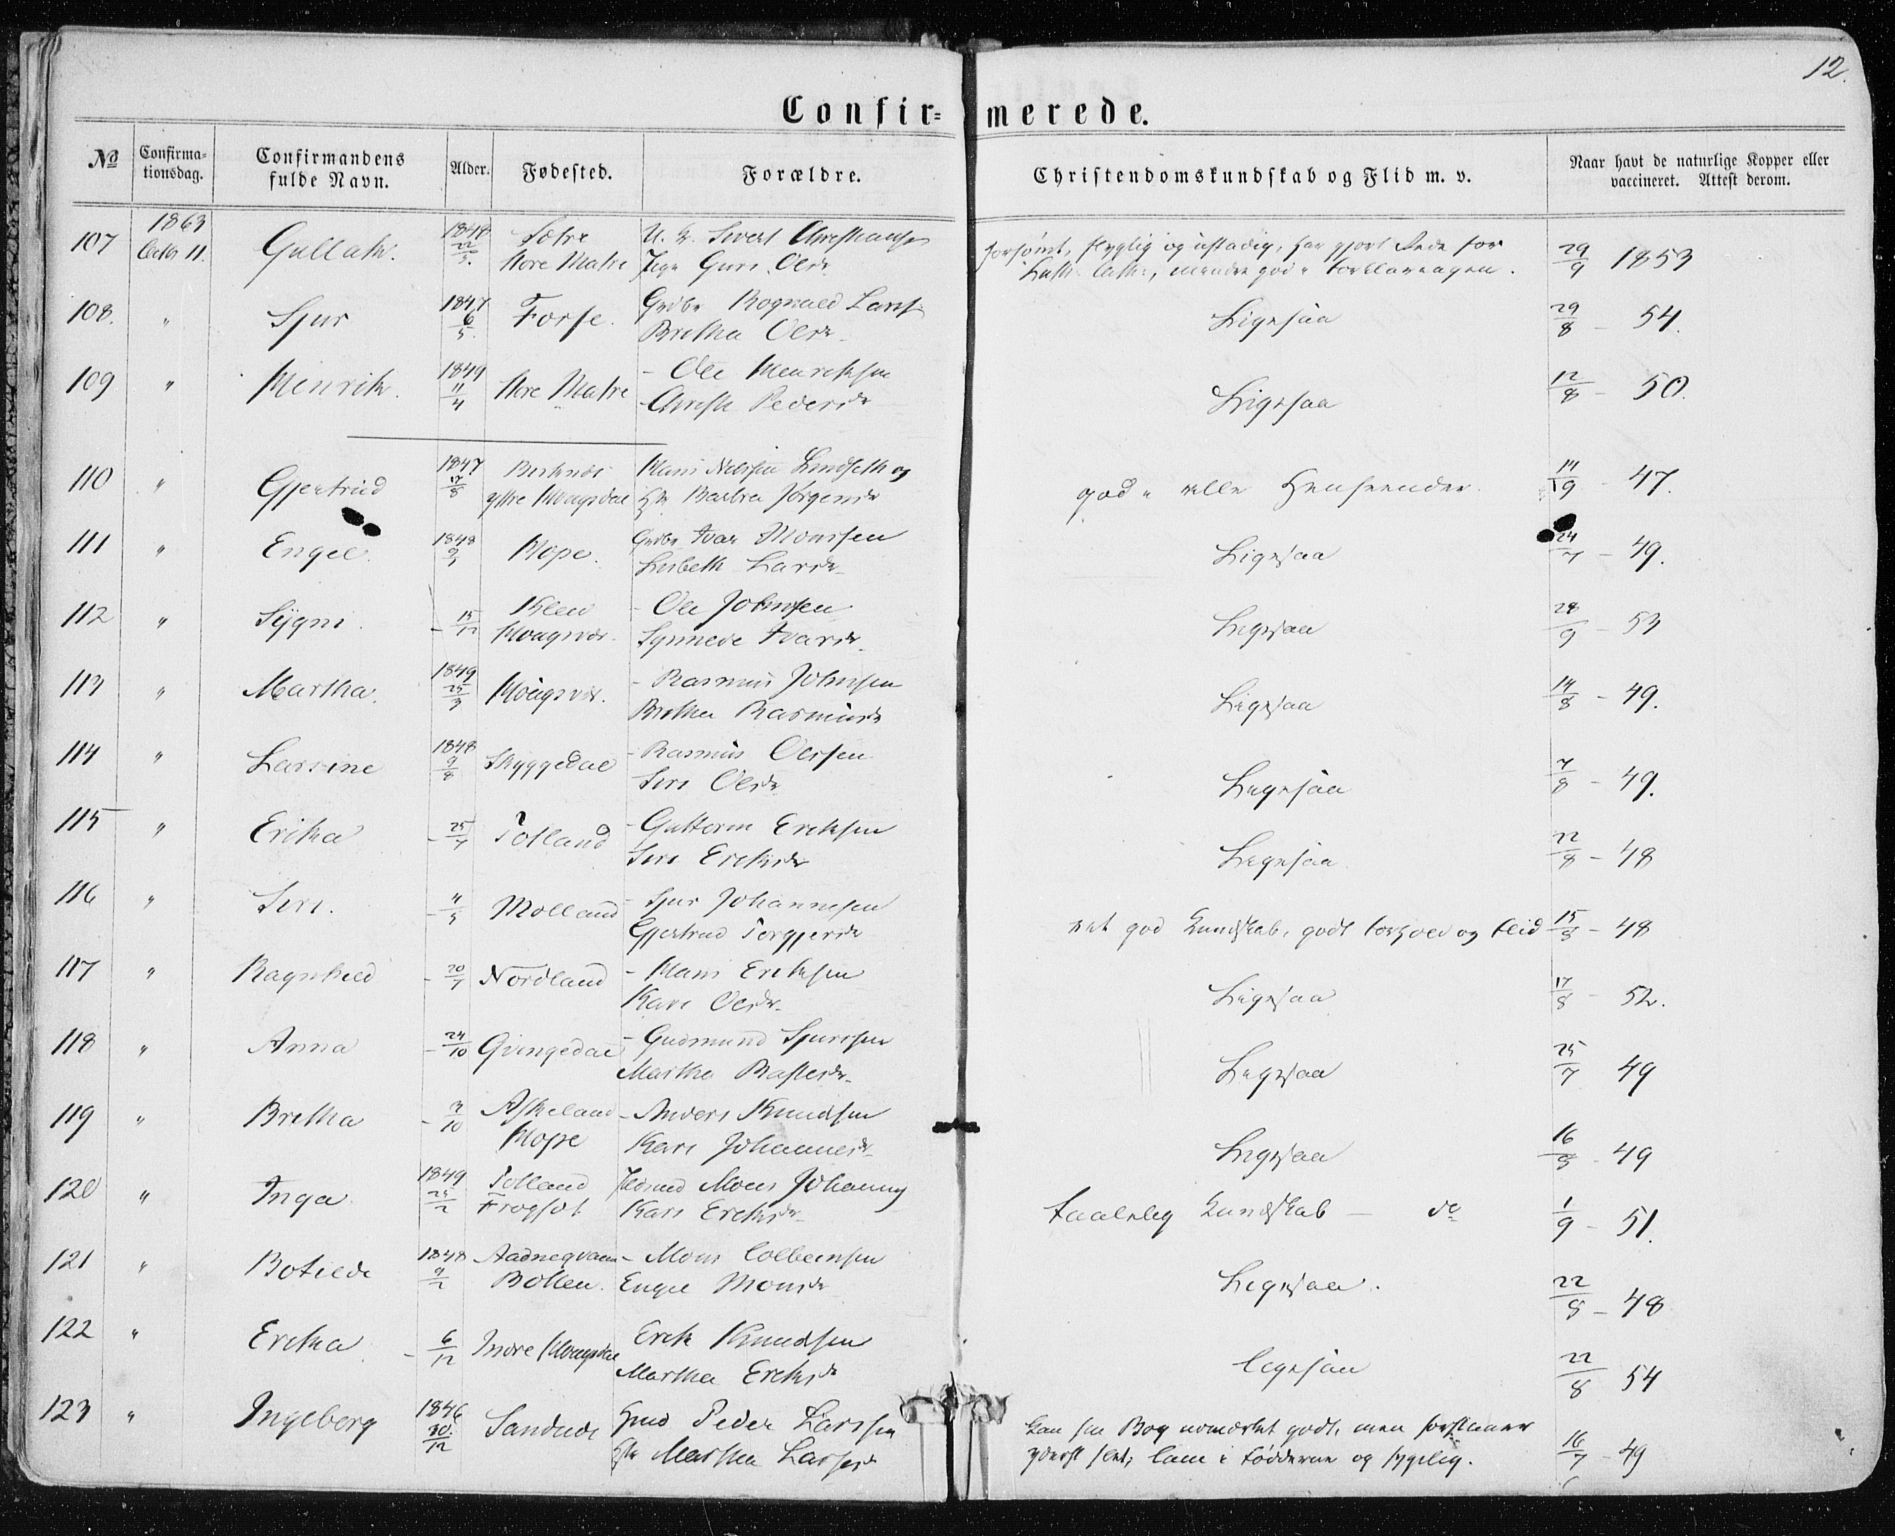 12.
Confir= merede.
No Confirma-tionsdag. Confirmandens fulde Navn. Alder. Fødested. Forældre. Christendomskundskab og Flid m. v. Naar havt de naturlige Kopper eller vaccineret. Attest derom.
107 1863 Octbr 11. Gullak. 1848 22/5. Store Matre Guri Olsdr 29/9 1853
108. " Sjur 1847 6/5. Forse. Rognald Larss. Bretha Olsdr. Ligesaa 29/8 - 54.
109 " Henrik. 1849 11/4 Store Matre - Ole Henriksen Christi Pedersdr Ligesaa 12/8 - 50.
110 " Gjertrud 1847 17/8 ystre Hougsdal Hans Nilssen Lindseth og Barbra Jørgensdr god i alle Henseender. 14/9 - 47.
111 " Engel. 1848 9/5 Hope. Grdbr Ivar Monssen Lisbeth Larsdr Ligesaa 24/7 - 49.
112 " Sygni. - 15/12 Hougsvær. - Ole Johnsen Synneve Ivarsdr. Ligesaa 28/9 - 53
113 " Martha. 1849 25/3 Hougsvær. - Rasmus Johnsen Bretha Rasmusdr Ligesaa 14/8 - 49.
114 " Larsine 1848 9/8 Skyggedal - Rasmus Olssen Siri Olsdr Ligesaa 7/8 - 49.
115 " Erika - 25/7 Totland - Guttorm Eriksen Siri Eriksdr Ligesaa 22/8 - 48
116 " Siri. - 4/5 Molland - Sjur Johannesen Gjertrud Torgjersdr ret god Kundskab, godt Forhold og Flid 15/8 - 48
117 " Ragnhild - 20/7 Nordland - Hans Eriksen Kari Olsdr. Ligesaa 17/8 - 52.
118 " Anna - 24/10 Qvingedal - Gudmund Sjurssen Martha Rasmsdr. Ligesaa 25/7 49
119 " Bretha - 3/10 Askeland Hope - Anders Knudsen Kari Johannesdr Ligesaa 16/8 - 49
120 " Inga 1849 25/2 Totland Frogset Huusmd Mons Johannes Kari Eriksdr taalelig Kundskab - do 1/9 - 51.
121 " Botilde 1848 9/2 Aadneqvam Botten. - Mons Colbeinsen Engel Monsdr Ligesaa. 22/8 - 48
122 " Erika - 6/12 Indre Hougsdal Erik Knudsen Martha Eriksdr Ligesaa 22/8 54
123 " Ingeborg 1846 30/12 Sandnes Peder Larssen Martha Larsdr kan sin Bog nomærket godt, men forstaaer yderst slet; lam i Fødderne og sygelig. 16/7 - 49